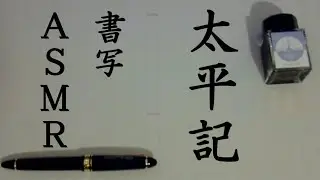 太平記
書写
ASMR